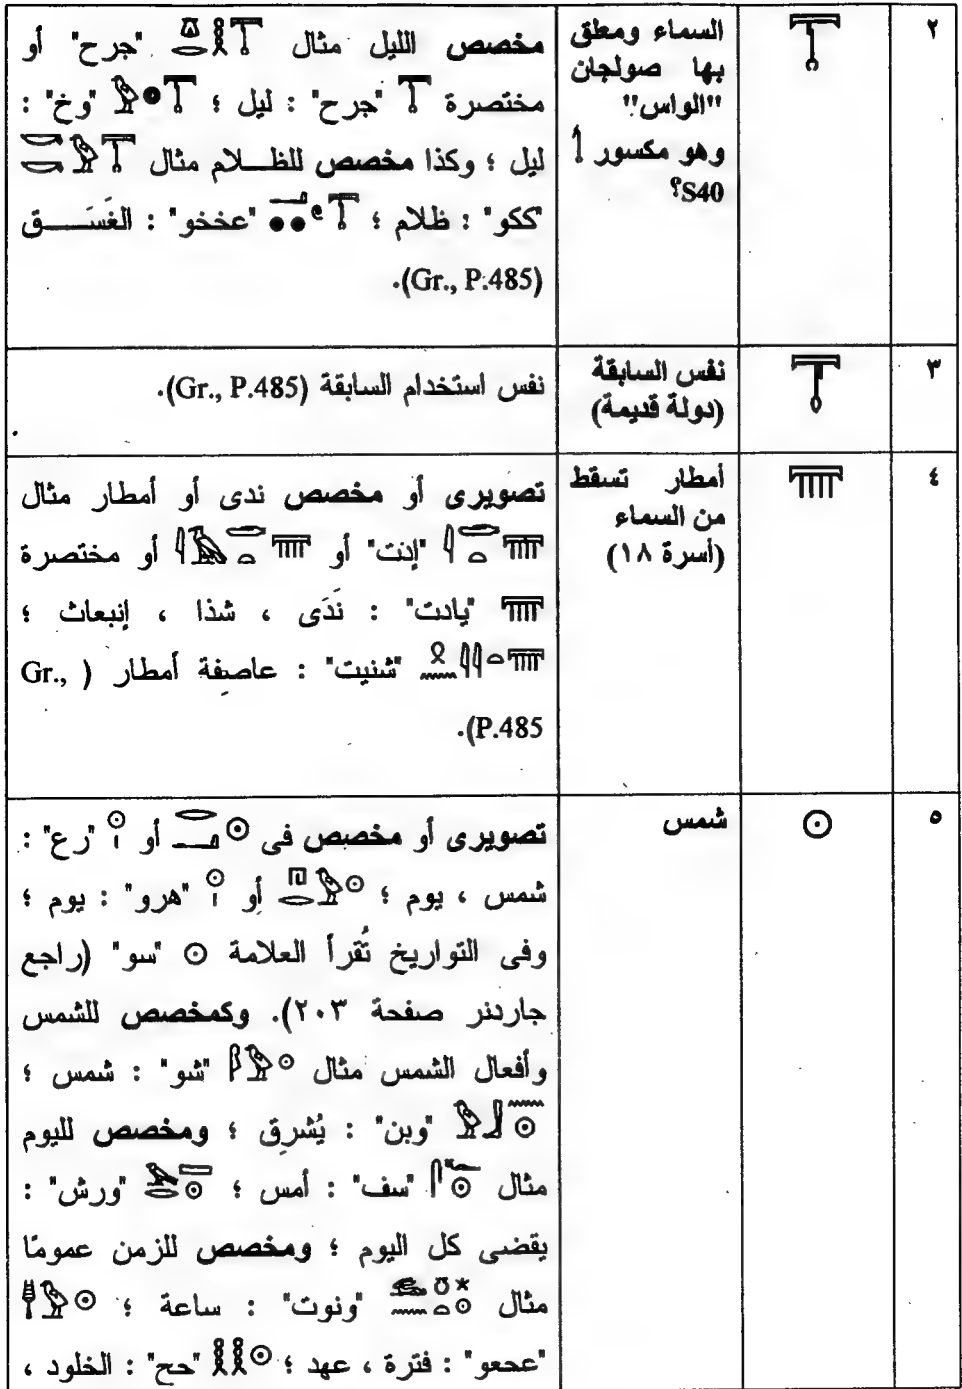 ٢
السماء ومعلق
بها صولجان
"الواس"
وهو مكسور 𓌀
S40؟
𓇰
مخصص الليل مثال 𓎼𓂋𓎛𓇰 "جرح" أو
مختصرة 𓇰 "جرح" : ليل ؛ 𓅱𓐍𓇰 "وخ" :
ليل ؛ وكذا مخصص للظلام مثال 𓎡𓎡𓅱𓇰
"ككو" : ظلام ؛ 𓂝𓐍𓐍𓏲𓇰 "عخخو" : الغَسَق
(Gr., P.485).
٣
نفس السابقة
(دولة قديمة)
𓇱
نفس استخدام السابقة (Gr., P.485).
٤
أمطار تسقط
من السماء
(أسرة ١٨)
𓇲
تصويرى أو مخصص ندى أو أمطار مثال
𓇋𓂧𓏏𓇲 "إدت" أو 𓇋𓄿𓂧𓏏𓇲 أو مختصرة
𓇲 "يادت" : نَدَى ، شذا ، إنبعاث ؛
𓍶𓈖𓇋𓇋𓏏𓇲 "شنيت" : عاصفة أمطار (Gr.,
P.485).
٥
شمس
𓇳
تصويرى أو مخصص فى 𓂋𓂝𓇳 أو 𓇳𓏤 "رع" :
شمس ، يوم ؛ 𓉔𓂋𓅱𓇳 أو 𓇳𓏤 "هرو" : يوم ؛
وفى التواريخ تُقرأ العلامة 𓇳 "سو" (راجع
جاردنر صفحة ٢٠٣). وكمخصص للشمس
وأفعال الشمس مثال 𓆄𓅱𓇳 "شو" : شمس ؛
𓅱𓃀𓈖𓇳 "وبن" : يُشرِق ؛ ومخصص لليوم
مثال 𓋴𓆑𓇳 "سف" : أمس ؛ 𓅨𓂋𓈙𓇳 "ورش" :
يقضى كل اليوم ؛ ومخصص للزمن عمومًا
مثال 𓃹𓈖𓏌𓏏𓇼𓇳 "ونوت" : ساعة ؛ 𓊢𓅱𓇳
"عحعو" : فترة ، عهد ؛ 𓎛𓎛𓇳 "حح" : الخلود ،